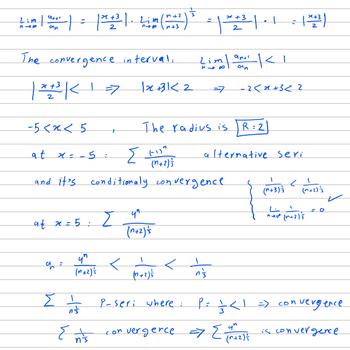 Lim n→∞ |a_{n+1}/a_n| = |x+3/2| · Lim n→∞ (n+2/n+3)^{1/3} = |x+3/2| · 1 = |x+3/2|
The convergence interval, Lim n→∞ |a_{n+1}/a_n| < 1
|x+3/2| < 1 ⇒ |x+3| < 2 ⇒ -2 < x+3 < 2
-5 < x < 5 , The radius is R = 2
at x = -5 : Σ (-1)^n/(n+2)^{1/3} alternative seri
and it's conditionaly convergence { 1/(n+3)^{1/3} < 1/(n+2)^{1/3}
Lim n→∞ 1/(n+2)^{1/3} = 0 ✓
at x = 5 : Σ 4^n/(n+2)^{1/3}
a_n = 4^n/(n+2)^{1/3} < 1/(n+2)^{1/3} < 1/n^{1/3}
Σ 1/n^{1/3} P-seri where : P = 1/3 < 1 ⇒ convergence
Σ 1/n^{1/3} convergence ⇒ Σ 4^n/(n+2)^{1/3} is convergence